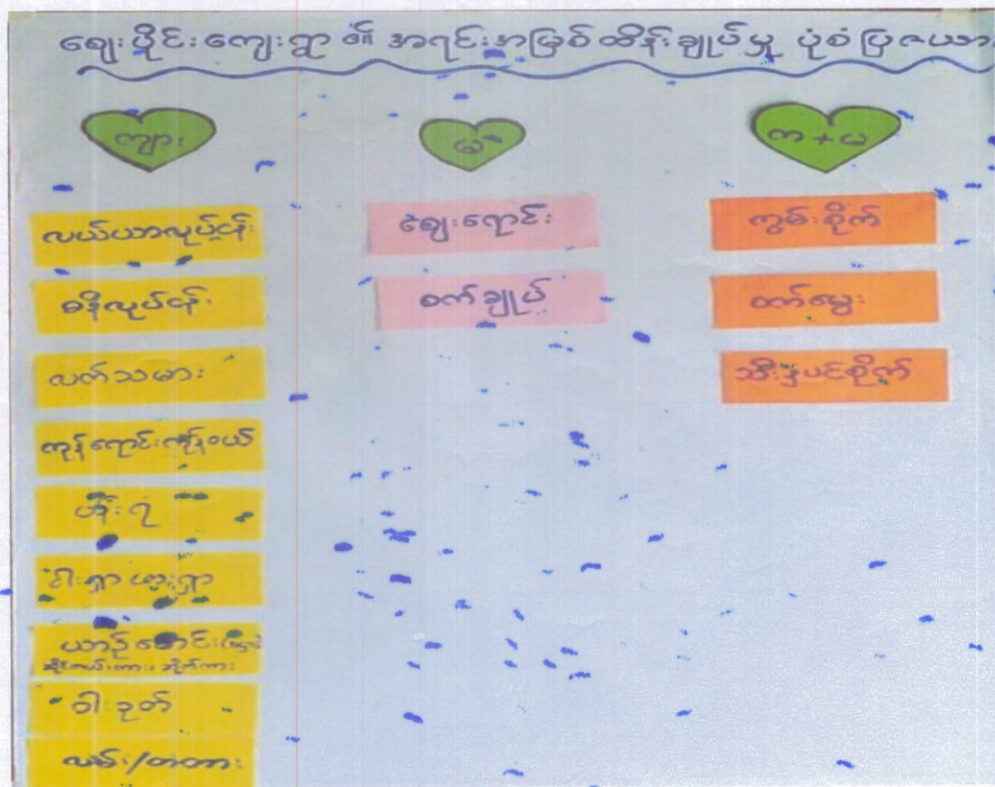 ဈေးပိုင်းကျေးရွာ ၏ အရင်းအမြစ်ထိန်းချုပ်မှု ပုံစံပြဇယား
ကျား
မ
က+မ
လယ်ယာလုပ်ငန်း
ဓနိလုပ်ငန်း
လက်သမား
ကုန်ရောင်းကုန်ဝယ်
ပန်းရံ
ငါးရှာ ဖားရှာ
ယာဉ်မောင်း
ဝါးခုတ်
လမ်း/တံတား
ဈေးရောင်း
စက်ချုပ်
ကွမ်းစိုက်
ဝက်မွေး
သီးနှံပင်စိုက်